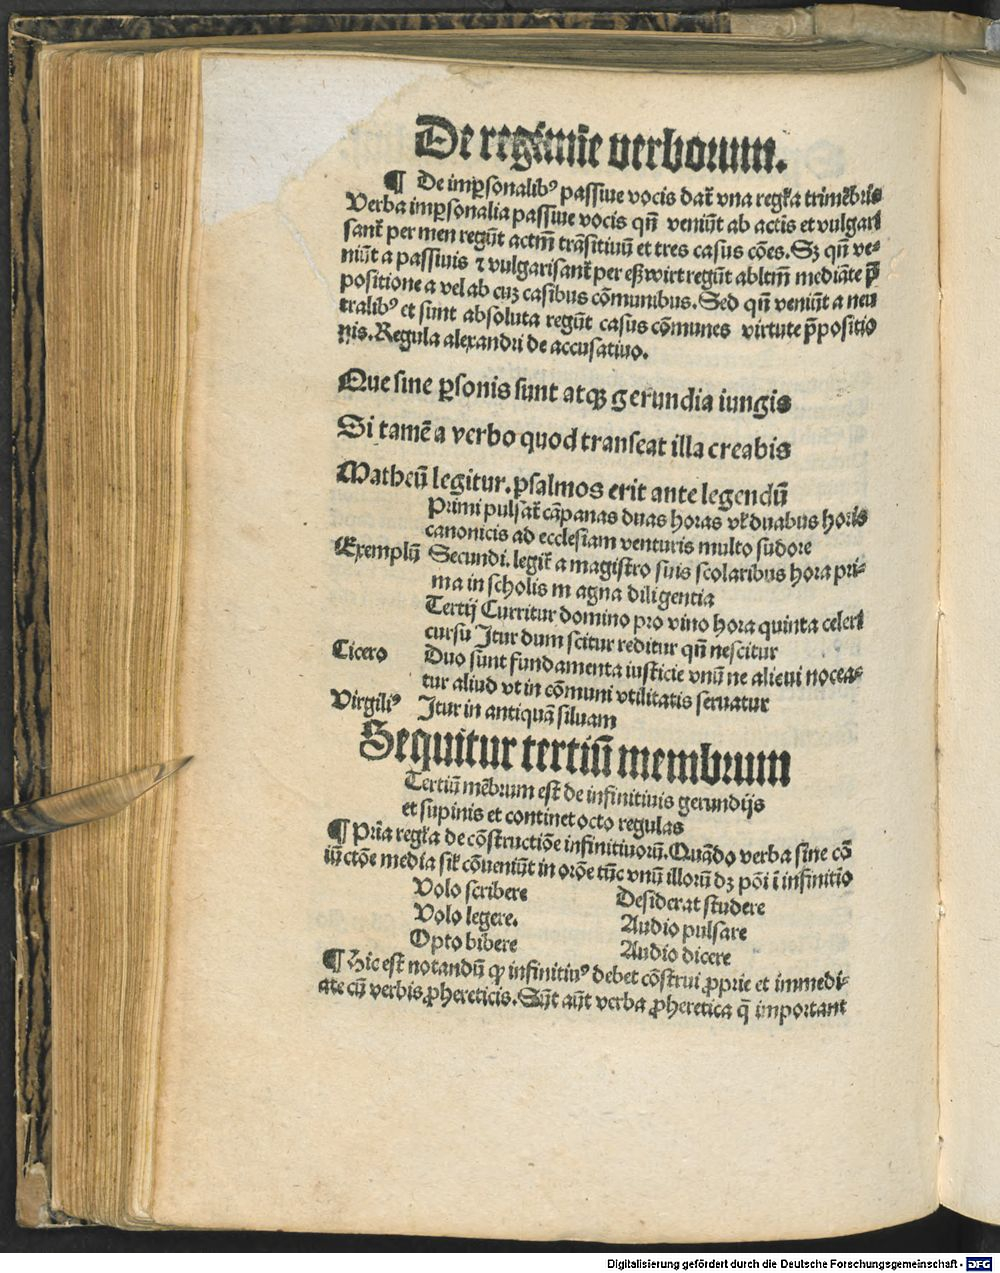 De regimīe verborum.
¶ De imp̱sonalibꝰ passiue vocis dat̄ vna regl̓a trimēbris
Verba imp̱sonalia passiue vocis qn̄ veniūt ab actis et vulgari
sant̄ per men regūt actm̄ trāsitiuū et tres casus cōes. Sꝫ qn̄ ve-
niūt a passiuis ⁊ vulgarisant̄ per eß wirt regūt abltm̄ mediāte p̄
positione a vel ab cuꝫ casibus cōmunibus. Sed qn̄ veniūt a neu
tralibꝰ et sunt absoluta regūt casus cōmunes virtute p̄positio
nis. Regula alexandri de accusatiuo.
Que sine ꝑsonis sunt atqꝫ gerundia iungis
Si tamē a verbo quod transeat illa creabis
Matheū legitur. psalmos erit ante legendū
Primi pulsat̄ cāpanas duas horas vl̓ duabus horis
canonicis ad ecclesiam venturis multo sudore
Exemplū Secundi. legit̄ a magistro suis scolaribus hora pri-
ma in scholis m agna diligentia
Tertij Curritur domino pro vino hora quinta celeri
cursu Itur dum scitur reditur qn̄ nescitur
Cicero Duo sunt fundamenta iusticie vnū ne alicui nocea-
tur aliud vt in cōmuni vtilitatis seruatur
Virgiliꝰ Itur in antiquā siluam
Sequitur tertiū membrum
Tertiū mēbrum est de infinitiuis gerundijs
et supinis et continet octo regulas
¶ Pria regl̓a de cōstructiōe infinitiuorū. Quādo verba sine cō
iūctōe media sil̓ cōueniūt in orōe tūc vnū illorū dꝫ pōi ī infinitiō
Volo scribere Desiderat studere
Volo legere. Audio pulsare
Opto bibere Audio dicere
¶ Hic est notandū ꝙ infinitiuꝰ debet cōstrui ꝓprie et immedi-
ate cū verbis ꝓhereticis. Sūt aūt verba ꝓheretica q̄ important
Digitalisierung gefördert durch die Deutsche Forschungsgemeinschaft - DFG